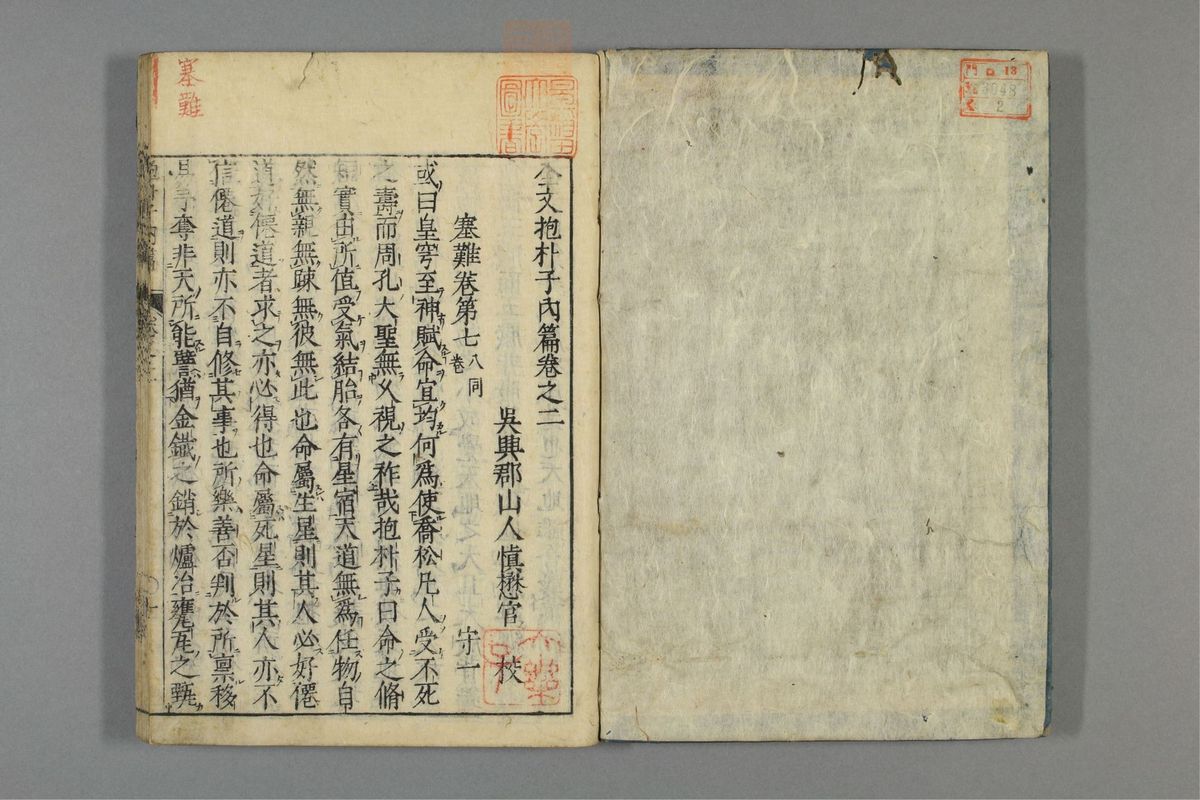 門 ロ 13
號 3048
卷 2
塞難
全文抱朴子內篇卷之二
吳興郡山人慎懋官 校
塞難卷第七 八卷同 守一
或曰皇穹至神賦命宜均何爲使喬松凡人受不死
之壽而周孔大聖無久視之祚哉抱朴子曰命之脩
短實由所值受氣結胎各有星宿天道無爲任物自
然無親無疎無彼無此也命屬生星則其人必好僊
道好僊道者求之亦必得也命屬死星則其人亦不
信僊道則亦不自修其事也所樂善否判於所禀移
易予奪非天所能譬猶金鐵之銷於爐冶甕瓦之甄